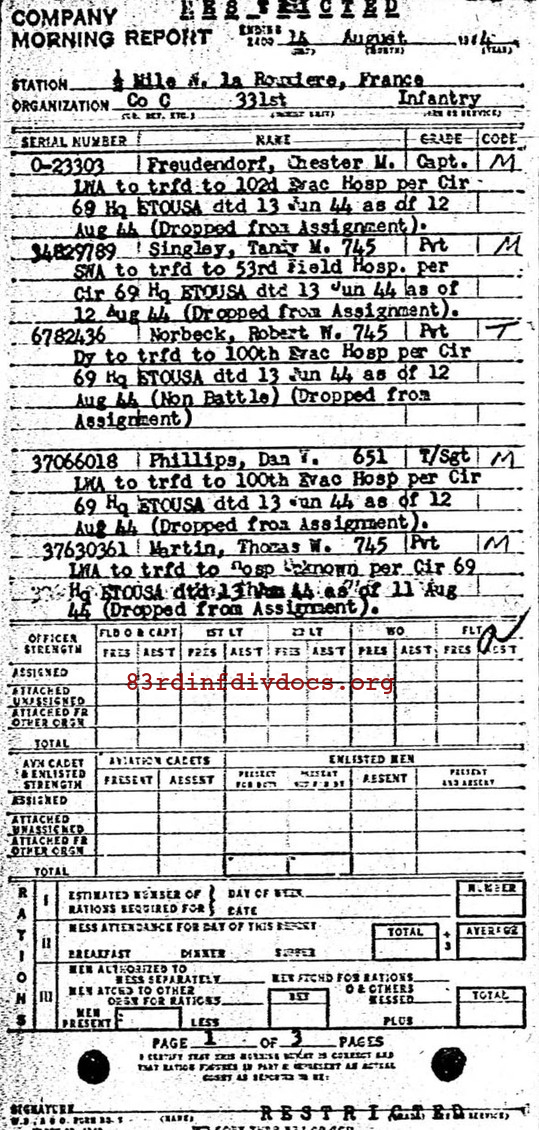 RESTRICTED
COMPANY
MORNING REPORT ENDING 2400 14 August 1944
(DAY) (MONTH) (YEAR)
STATION ½ Mile N. la France
ORGANIZATION Co C 331st Infantry
SERIAL NUMBER NAME GRADE CODE
O-23303 Freudendorf, Chester M. Capt. M
LWA to trfd to 102d Evac Hosp per Cir
69 Hq ETOUSA dtd 13 Jun 44 as of 12
Aug 44 (Dropped from Assignment).
34829789 Singley, M. 745 Pvt M
SWA to trfd to 53rd Field Hosp. per
Cir 69 Hq ETOUSA dtd 13 Jun 44 as of
12 Aug 44 (Dropped from Assignment).
6782436 Norbeck, Robert W. 745 Pvt T
Dy to trfd to 100th Evac Hosp per Cir
69 Hq ETOUSA dtd 13 Jun 44 as of 12
Aug 44 (Non Battle) (Dropped from
Assignment)
37066018 Phillips, Dan 651 T/Sgt M
LWA to trfd to 100th Evac Hosp per Cir
69 Hq ETOUSA dtd 13 Jun 44 as of 12
Aug 44 (Dropped from Assignment).
37630361 Martin, Thomas W. 745 Pvt M
LWA to trfd to Hosp Unknown per Cir 69
Hq ETOUSA dtd 13 Jun 44 as of 11 Aug
44 (Dropped from Assignment).
OFFICER STRENGTH FLD O & CAPT 1ST LT 2D LT WO FLT O
PRES ABST PRES ABST PRES ABST PRES ABST PRES ABST
ASSIGNED
83rdinfdivdocs.org
ATTACHED UNASSIGNED
ATTACHED FR OTHER ORGN
TOTAL
AVN CADET & ENLISTED STRENGTH AVIATION CADETS ENLISTED MEN
PRESENT ABSENT PRESENT FOR DUTY PRESENT NOT FOR DY ABSENT PRESENT AND ABSENT
ASSIGNED
ATTACHED UNASSIGNED
ATTACHED FR OTHER ORGN
TOTAL
RATIONS
I ESTIMATED NUMBER OF RATIONS REQUIRED FOR DAY OF WEEK NUMBER
DATE
II MESS ATTENDANCE FOR DAY OF THIS REPORT TOTAL ÷ 3 AVERAGE
BREAKFAST DINNER SUPPER
III MEN AUTHORIZED TO MESS SEPARATELY MEN ATCHD FOR RATIONS
MEN ATCHD TO OTHER ORGN FOR RATIONS NET O & OTHERS MESSED TOTAL
MEN PRESENT LESS PLUS
PAGE 1 OF 3 PAGES
I CERTIFY THAT THIS MORNING REPORT IS CORRECT AND
THAT RATION FIGURES IN PART II REPRESENT AN ACTUAL
COUNT AS REPORTED TO ME:
SIGNATURE
(NAME) RESTRICTED